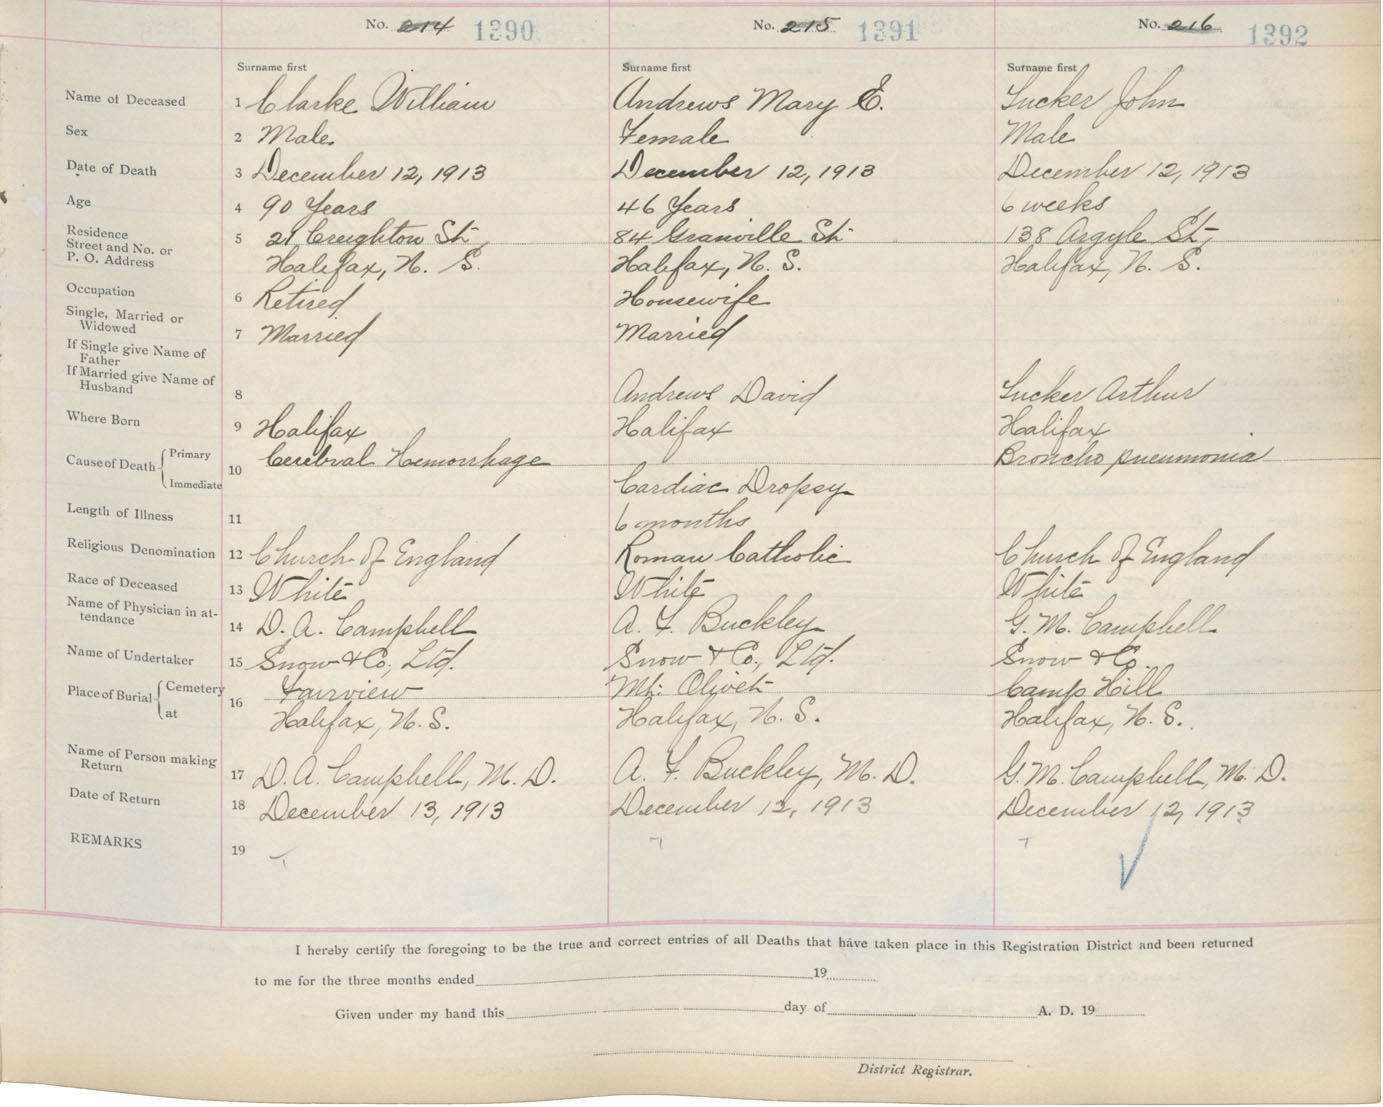 No. 214 1390 No. 215 1391 No. 216 1392
Surname first Surname first Surname first
Name of Deceased 1 Clarke William Andrews Mary E. Tucker John
Sex 2 Male. Female Male
Date of Death 3 December 12, 1913 December 12, 1913 December 12, 1913
Age 4 90 Years 46 Years 6 weeks
Residence
Street and No. or 5 21 Creighton St. 84 Granville St. 138 Argyle St.
P. O. Address Halifax, N. S. Halifax, N. S. Halifax, N. S.
Occupation 6 Retired Housewife
Single, Married or
Widowed 7 Married Married
If Single give Name of
Father
If Married give Name of
Husband 8 Andrews David Tucker Arthur
Where Born 9 Halifax Halifax Halifax
Cause of Death Primary 10 Cerebral Hemorrhage Broncho pneumonia
Immediate Cardiac Dropsy
Length of Illness 11 6 months
Religious Denomination 12 Church of England Roman Catholic Church of England
Race of Deceased 13 White White White
Name of Physician in at-
tendance 14 D. A. Campbell A. F. Buckley G. M. Campbell
Name of Undertaker 15 Snow & Co., Ltd. Snow & Co., Ltd. Snow & Co.
Place of Burial Cemetery 16 Fairview Mt. Olivet Camp Hill
at Halifax, N. S. Halifax, N. S. Halifax, N. S.
Name of Person making
Return 17 D. A. Campbell, M. D. A. F. Buckley, M. D. G. M. Campbell, M. D.
Date of Return 18 December 13, 1913 December 12, 1913 December 12, 1913
REMARKS 19
I hereby certify the foregoing to be the true and correct entries of all Deaths that have taken place in this Registration District and been returned
to me for the three months ended 19
Given under my hand this day of A. D. 19
District Registrar.